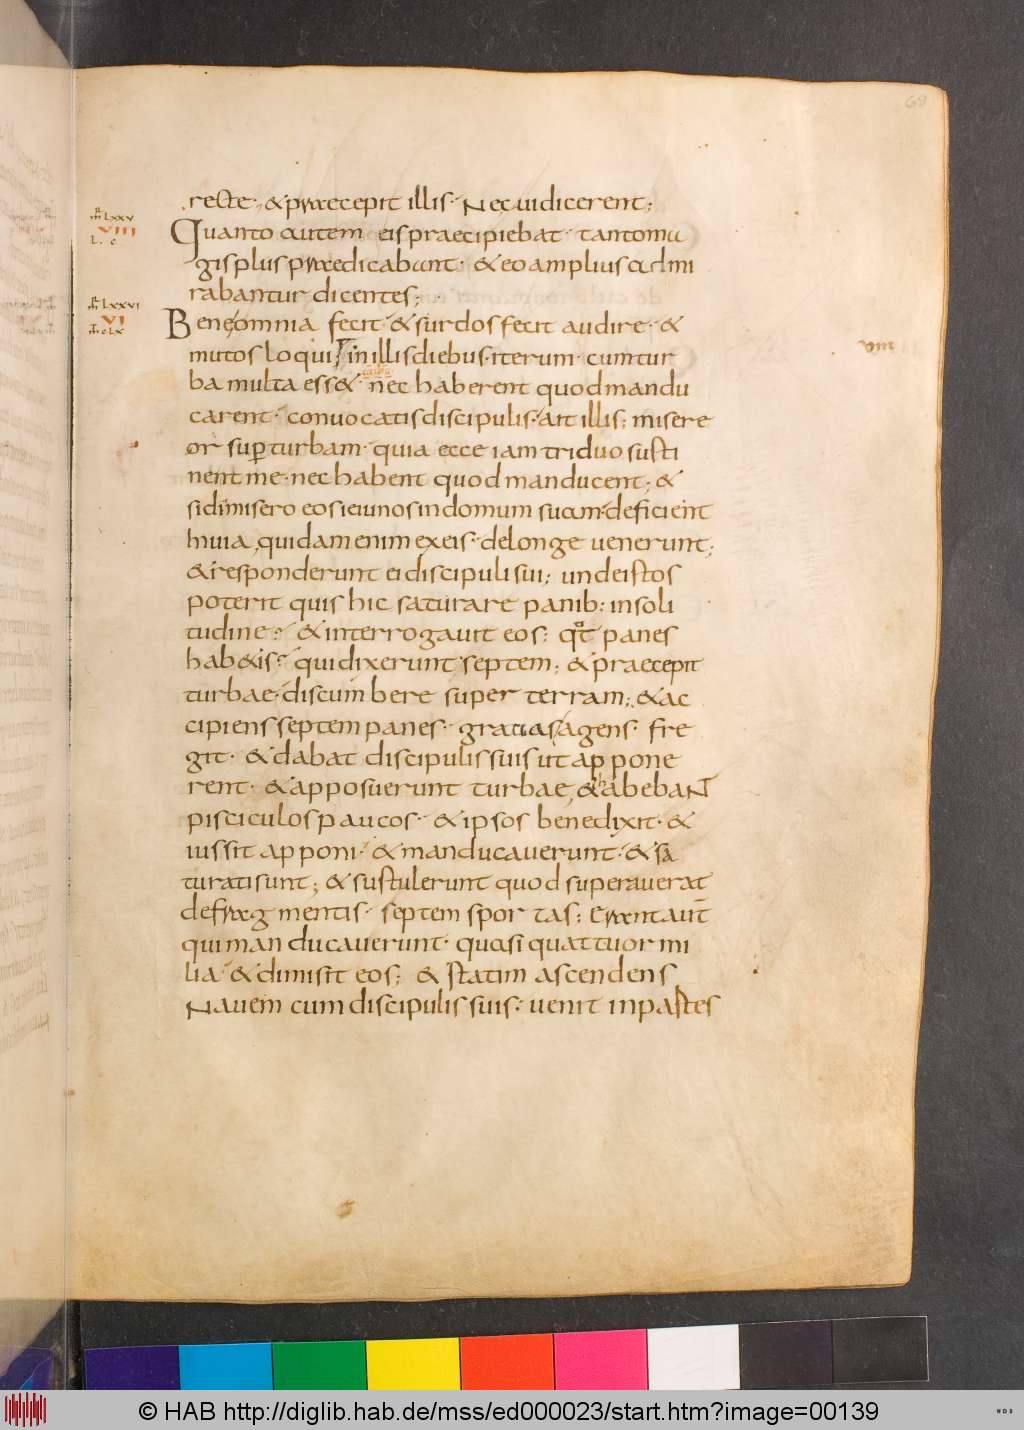 69
recte· & praecepit illis· Ne cui dicerent;
mr̄ LXXV
VIII
L· c
Quanto autem eis praecipiebat· tanto ma
gis plus praedicabant· & eo amplius admi
rabantur dicentes;
mt̄ LXXVI
VI
mt̄ cLX
Bene omnia fecit· & surdos fecit audire· &
mutos loqui; In illis diebus· iterum cum tur
VIII
ba multa ess&· nec haberent quod mandu
carent· convocatis discipulis· ait illis: misere
or sup turbam· quia ecce iam triduo susti
nent me· nec habent quod manducent; &
si dimisero eos ieiunos in domum suam· deficient
in via, quidam enim ex eis· de longe venerunt;
& responderunt ei discipuli sui; unde istos
poterit quis hic saturare panib: in soli
tudine? & interrogavit eos: qōt panes
hab&is? qui dixerunt septem; & praecepit
turbae· discumbere super terram; & ac
cipiens septem panes· gratias agens· fre
git· & dabat discipulis suis ut appone
rent· & apposuerunt turbae, & habebant
pisciculos paucos· & ipsos benedixit· &
iussit apponi· & manducaverunt· & sa
turati sunt; & sustulerunt quod superaverat
de fragmentis· septem sportas: Erant aut̄
qui manducaverunt· quasi quattuor mi
lia· & dimisit eos; & statim ascendens
Navem cum discipulis suis· venit in pastes
© HAB http://diglib.hab.de/mss/ed000023/start.htm?image=00139